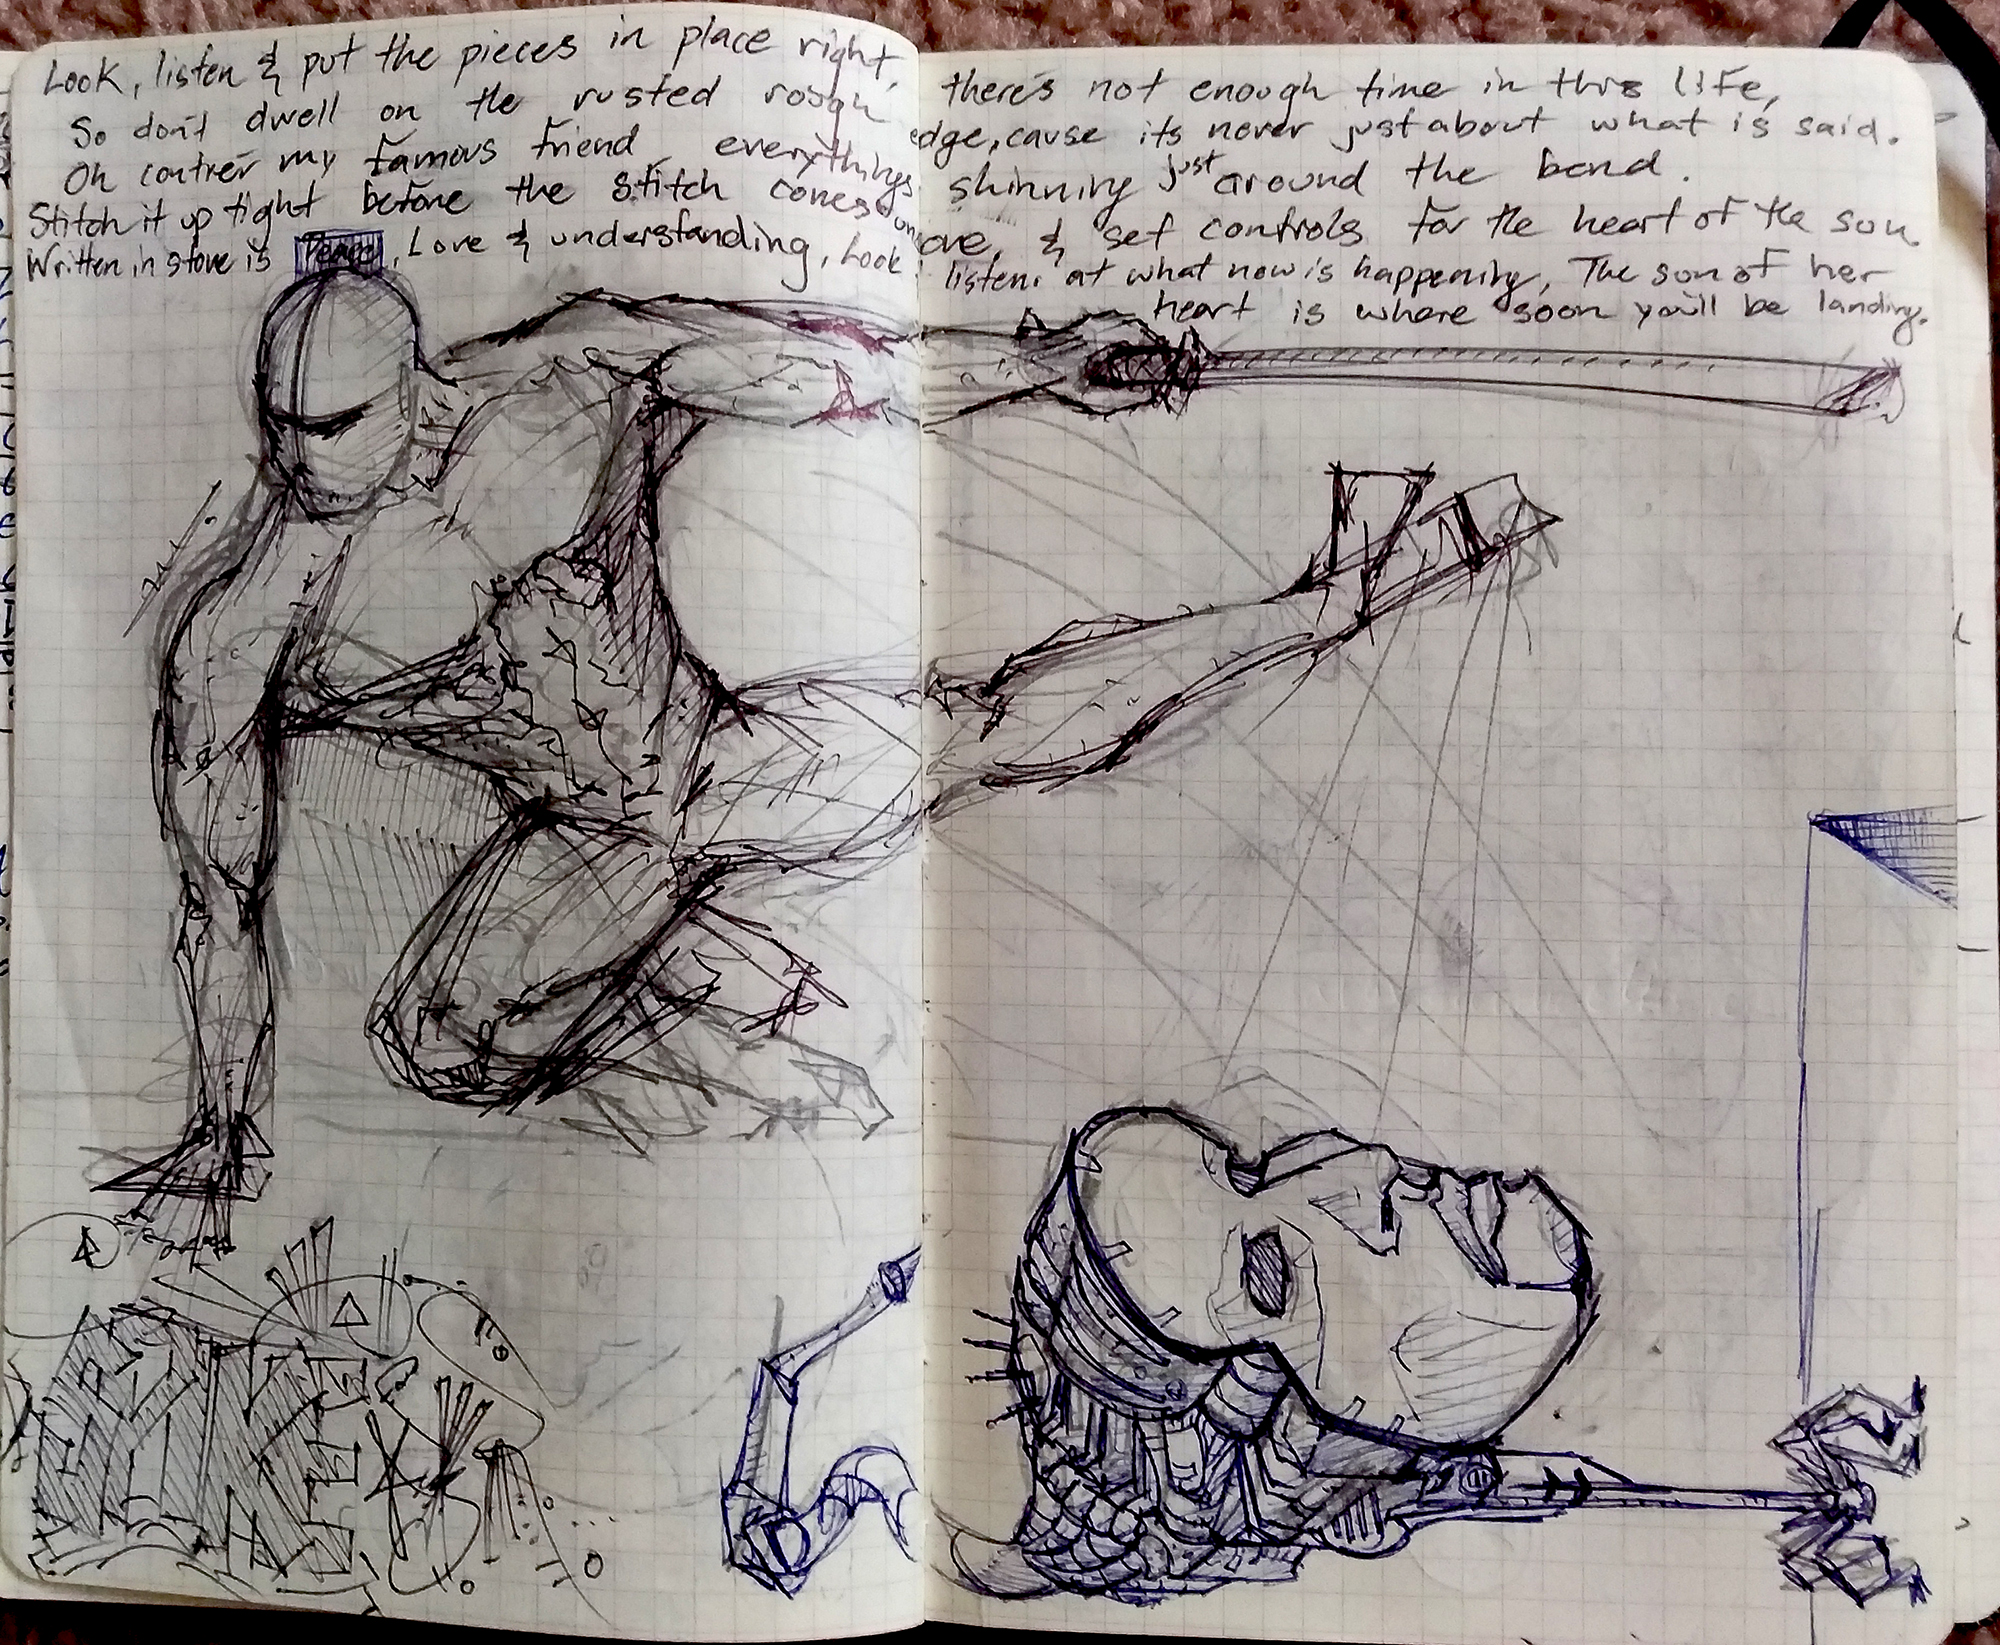 Look, listen & put the pieces in place right, there's not enough time in this life,
So don't dwell on the rusted rough edge, cause its never just about what is said.
Oh contrér my famous friend everythings shinning just around the bend.
Stitch it up tight before the stitch comes undone, & set controls for the heart of the sun.
Written in stone is Peace, Love & understanding, Look listen at what now is happening, The son of her
heart is where soon you'll be landing.